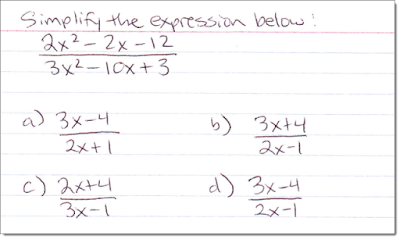 Simplify the expression below!
2x² - 2x - 12
3x² - 10x + 3
a) 3x-4
2x+1
b) 3x+4
2x-1
c) 2x+4
3x-1
d) 3x-4
2x-1